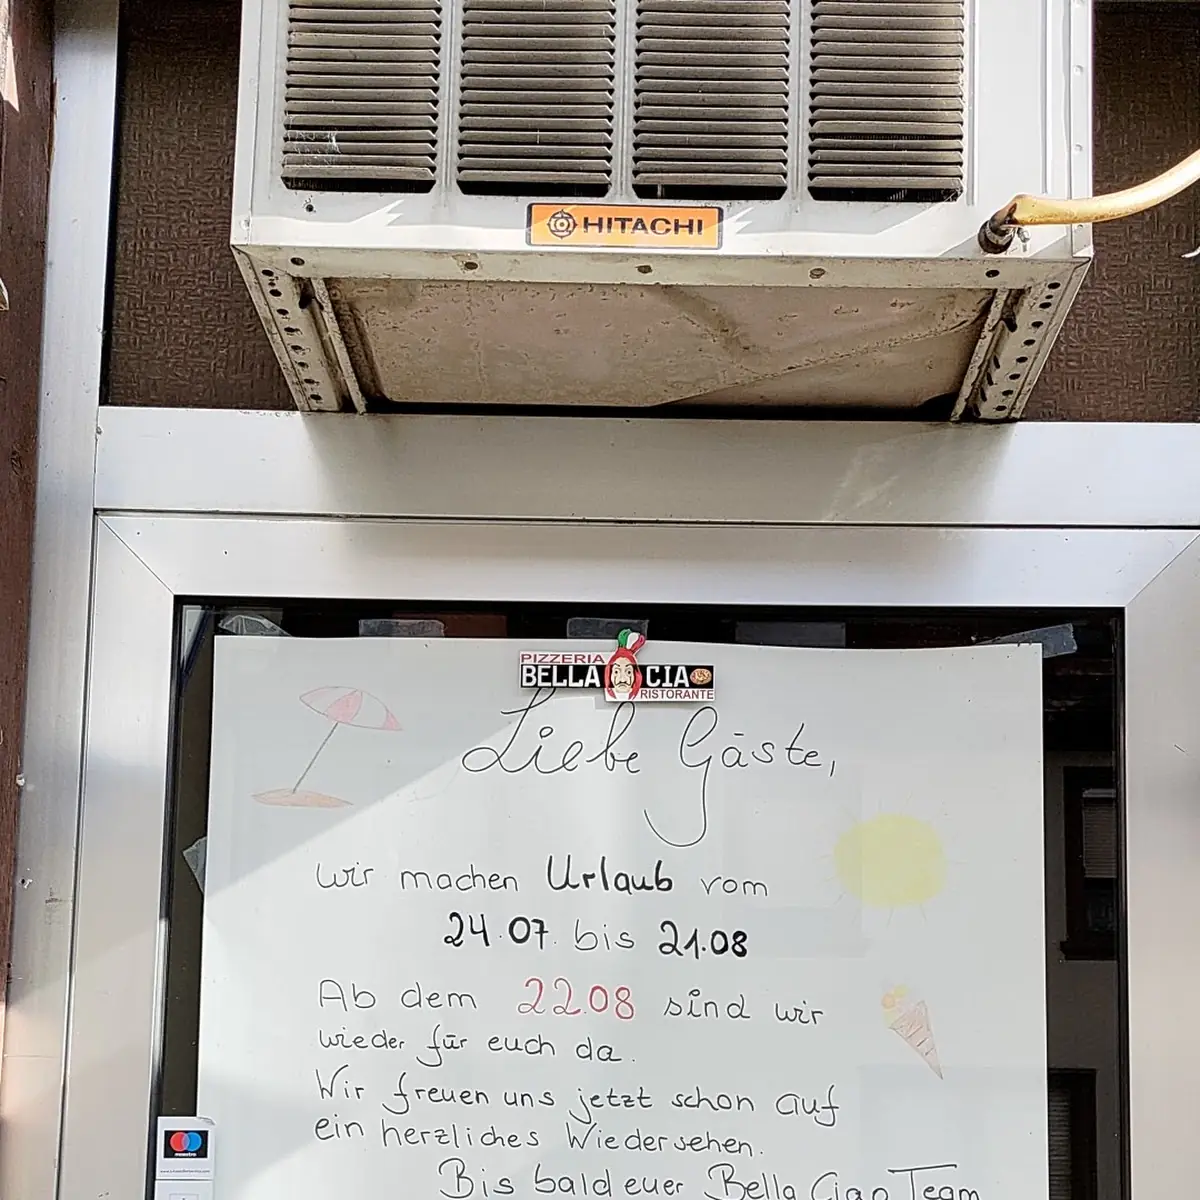 HITACHI
PIZZERIA
BELLA CIA
RISTORANTE
Liebe Gäste,
Wir machen Urlaub vom
24.07. bis 21.08
Ab dem 22.08 sind wir
wieder für euch da.
Wir freuen uns jetzt schon auf
ein herzliches Wiedersehen.
Bis bald euer Bella Ciao Team
maestro